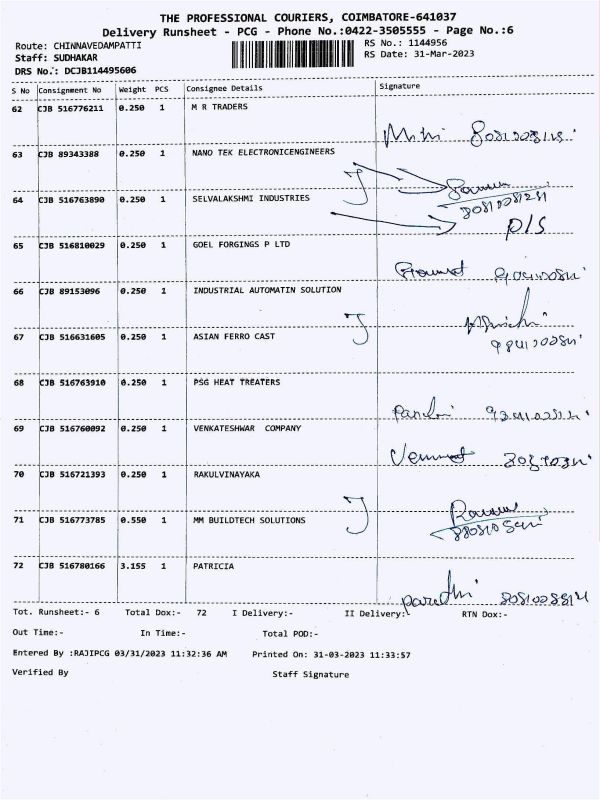 THE PROFESSIONAL COURIERS, COIMBATORE-641037
Delivery Runsheet - PCG - Phone No.:0422-3505555 - Page No.:6
Route: CHINNAVEDAMPATTI RS No.: 1144956
Staff: SUDHAKAR RS Date: 31-Mar-2023
DRS No.: DCJB114495606
S No Consignment No Weight PCS Consignee Details Signature
62 CJB 516776211 0.250 1 M R TRADERS
63 CJB 89343388 0.250 1 NANO TEK ELECTRONICENGINEERS
64 CJB 516763890 0.250 1 SELVALAKSHMI INDUSTRIES
D/S
65 CJB 516810029 0.250 1 GOEL FORGINGS P LTD
66 CJB 89153096 0.250 1 INDUSTRIAL AUTOMATIN SOLUTION
67 CJB 516631605 0.250 1 ASIAN FERRO CAST
68 CJB 516763910 0.250 1 PSG HEAT TREATERS
69 CJB 516760092 0.250 1 VENKATESHWAR COMPANY
70 CJB 516721393 0.250 1 RAKULVINAYAKA
71 CJB 516773785 0.550 1 MM BUILDTECH SOLUTIONS
72 CJB 516780166 3.155 1 PATRICIA
Tot. Runsheet:- 6 Total Dox:- 72 I Delivery:- II Delivery:- RTN Dox:-
Out Time:- In Time:- Total POD:-
Entered By :RAJIPCG 03/31/2023 11:32:36 AM Printed On: 31-03-2023 11:33:57
Verified By Staff Signature